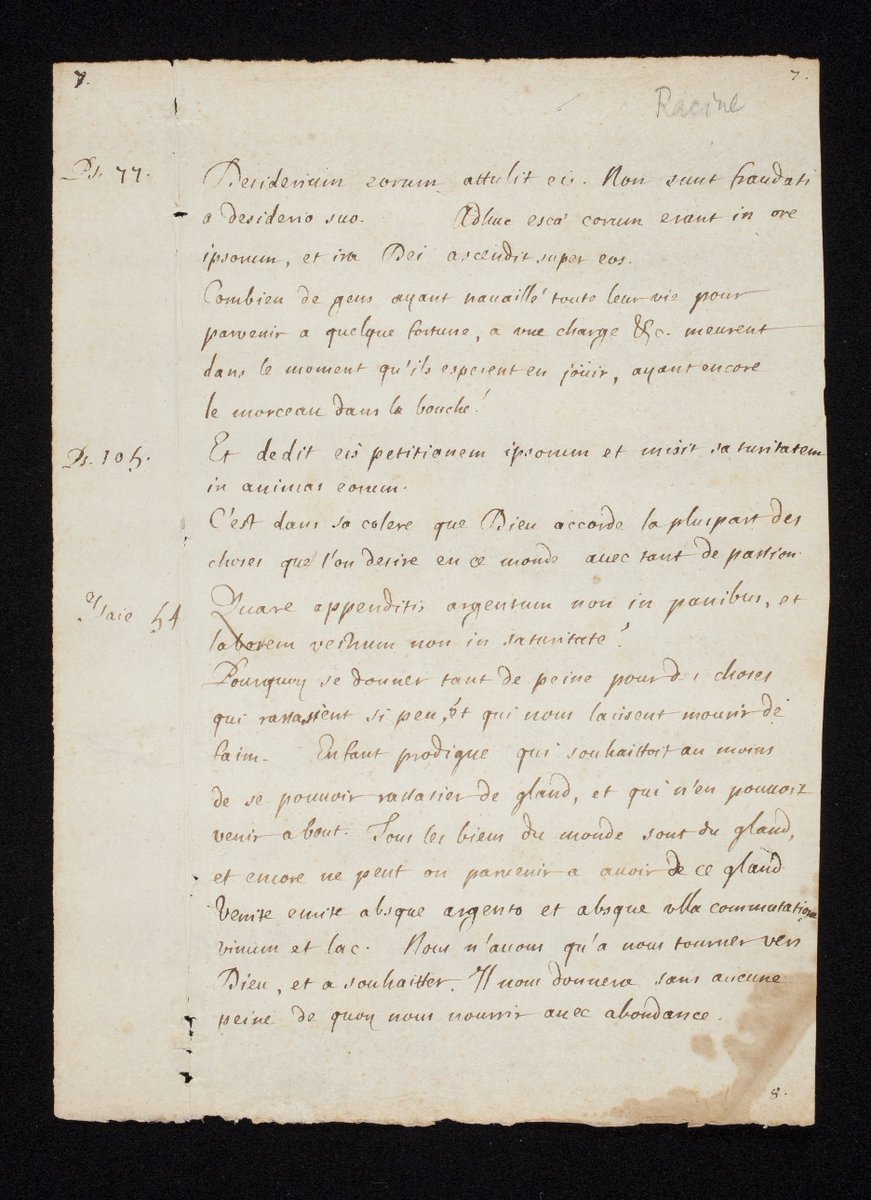 7.
7.
Racine
Ps. 77.
Desiderium eorum attulit eis. Non sunt fraudati
a desiderio suo. Adhuc escæ eorum erant in ore
ipsorum, et ira Dei ascendit super eos.
Combien de gens ayant travaillé toute leur vie pour
parvenir a quelque fortune, a vne charge &c. meurent
dans le moment qu'ils esperent en joüir, ayant encore
le morceau dans la bouche!
Ps. 105.
Et dedit eis petitionem ipsorum et misit saturitatem
in animas eorum.
C'est dans sa colere que Dieu accorde la pluspart des
choses que l'on desire en ce monde avec tant de passion.
Isaie 54
Quare appenditis argentum non in panibus, et
laborem vestrum non in saturitate?
Pourquoy se donner tant de peine pour des choses
qui rassasient si peu, et qui nous laissent mourir de
faim. Enfant prodigue qui souhaittoit au moins
de se pouvoir rassasier de gland, et qui n'en pouvoit
venir a bout. Tous les biens du monde sont du gland,
et encore ne peut on parvenir a avoir de ce gland
Venite emite absque argento et absque vlla commutatione
vinum et lac. Nous n'avons qu'a nous tourner vers
Dieu, et a souhaitter. Il nous donnera sans aucune
peine de quoy nous nourrir avec abondance.
8.